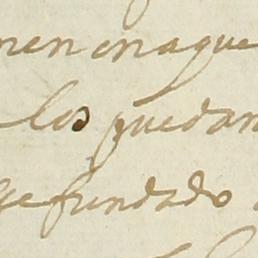 nen en aque
los puedan
se fundado